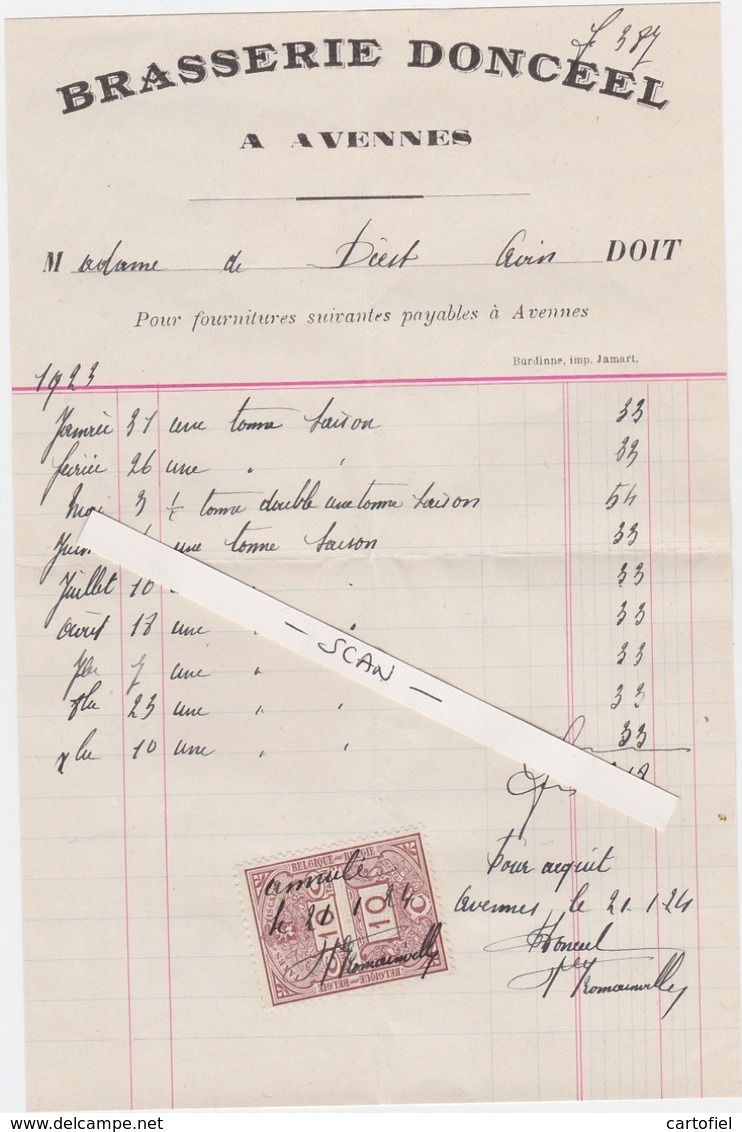 f 387
BRASSERIE DONCEEL
A AVENNES
Madame de Diest Avin DOIT
Pour fournitures suivantes payables à Avennes
Burdinne, imp. Jamart.
1923
Janvié 31 une tonne saison 33
fevrié 26 une " " 33
Mai 3 ½ tonne double une tonne saison 54
Juin une tonne saison 33
Juillet 10 " " 33
Août 18 une " " 33
7 une " 33
23 une " " 33
10 une " " 33
- SCAN -
Pour acquit
Avennes, le 21.1.24
Donceel
Romainville
BELGIQUE - BELGIE
annulé
le 21 1 24
10 10
Romainville
BELGIQUE - BELGIE
Delcampe.net
cartofiel